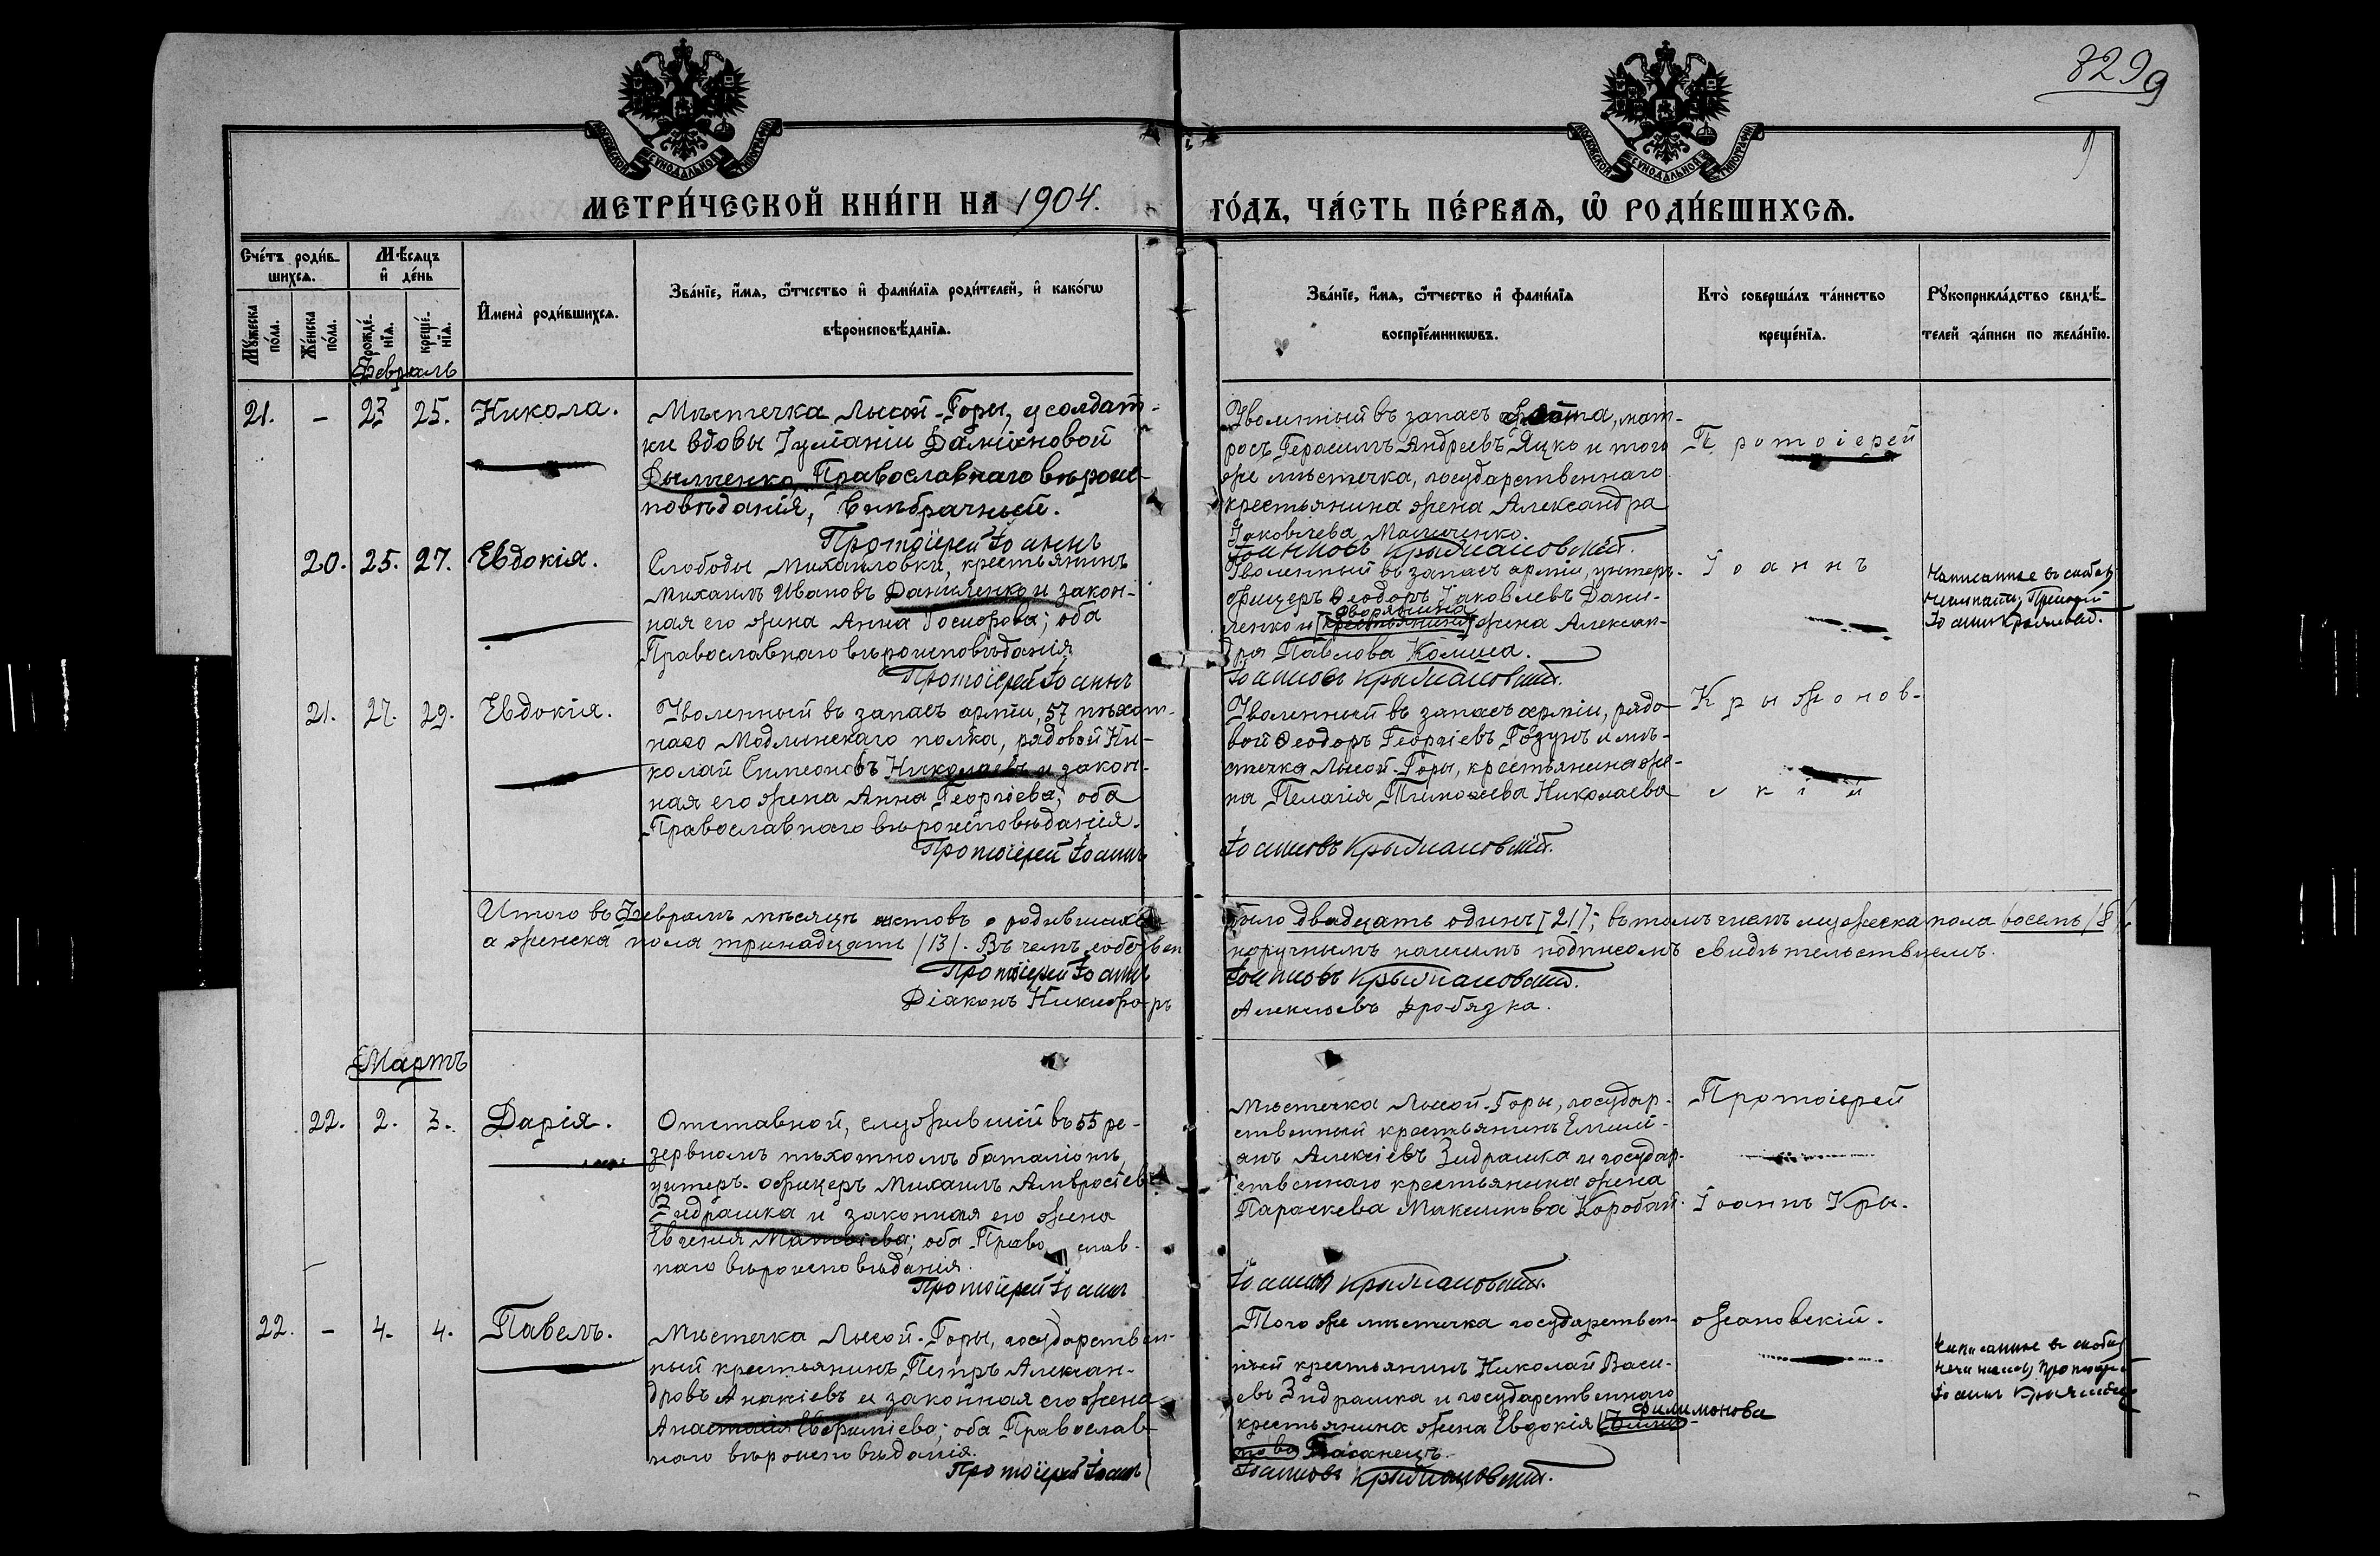 829 9
9
МОСКОВСКОЙ СѴНОДАЛЬНОЙ ТИПОГРАФІИ
МОСКОВСКОЙ СѴНОДАЛЬНОЙ ТИПОГРАФІИ
МЕТРИ́ЧЕСКОЙ КНИ́ГИ НА 1904.
ГО́ДЪ, ЧА́СТЬ ПЕ́РВАѦ, Ѡ҆ РОДИ́ВШИХСѦ.
Сче́тъ роди́в-
шихсѧ.
Мѣ́сѧцъ
и҆ де́нь
Мꙋ́жеска
по́ла.
Же́нска
по́ла.
рожде́-
нїѧ.
креще́-
нїѧ.
И҆мена̀ роди́вшихсѧ.
Зва́нїе, и҆́мѧ, ѻ҆́тчество и҆ фами́лїѧ роди́телей, и҆ како́гѡ
вѣроисповѣ́данїѧ.
Зва́нїе, и҆́мѧ, ѻ҆́тчество и҆ фами́лїѧ
воспрїе́мникѡвъ.
Кто̀ соверша́лъ та́инство
креще́нїѧ.
Рꙋкоприкла́дство свидѣ́-
телей за́писи по жела́нїю.
Февраль
21. – 23 25. Никола.
Мѣстечка Лысой-Горы, у солдат-
ки вдовы Іуліаніи Даміановой
Православнаго вѣроис-
повѣданія, внѣбрачный.
Протоіерей Іоаннъ
Уволенный въ запасъ флота, мат-
росъ Герасимъ Андреевъ Яцко и того
же мѣстечка, государственнаго
крестьянина жена Александра
Іаковлева Маличенко.
Іоанновъ Крыжановскій.
Протоіерей
20. 25. 27. Евдокія.
Слободы Михайловки, крестьянинъ
Михаилъ Ивановъ Даниленко и закон-
ная его жена Анна Іосифова; оба
Православнаго вѣроисповѣданія
Протоіерей Іоаннъ
Уволенный въ запасъ арміи, унтеръ-
офицеръ Ѳеодоръ Іаковлевъ Дани-
дворянина
ленко и [крестьянина] жена Алексан-
дра Павлова Колиша.
Іоанновъ Крыжановскій.
Іоаннъ
Написанное въ скобкахъ
не читать; Протоіерей
Іоаннъ Крыжановскій.
21. 27. 29. Евдокія.
Уволенный въ запасъ арміи, 57 пѣхот-
наго Модлинскаго полка, рядовой Ни-
колай Симеоновъ Николаевъ и закон-
ная его жена Анна Георгіева; оба
Православнаго вѣроисповѣданія.
Протоіерей Іоаннъ
Уволенный въ запасъ арміи, рядо-
вой Ѳеодоръ Георгіевъ Гозунъ и мѣ-
стечка Лысой-Горы, крестьянина же-
на Пелагія Тимоѳеева Николаева
Іоанновъ Крыжановскій.
Крыжонов-
скій
Итого въ Февралѣ мѣсяцѣ актовъ о родившихся было двадцать одинъ [21]; въ томъ числѣ мужеска пола восемь /8/,
а женска пола тринадцать /13/. Въ чемъ собственноручнымъ нашимъ подписомъ свидѣтельствуемъ.
Протоіерей Іоаннъ Іоанновъ Крыжановскій.
Діаконъ Никифоръ Алексіевъ Дробязка.
Мартъ
22. 2. 3. Дарія.
Отставной, служившій въ 55 ре-
зервномъ пѣхотномъ баталіонѣ,
унтеръ-офицеръ Михаилъ Амвросіевъ
Зидрашка и законная его жена
Евгенія Матвіева; оба Православ-
наго вѣроисповѣданія.
Протоіерей Іоаннъ
Мѣстечка Лысой-Горы, государ-
ственный крестьянинъ Емили-
анъ Алексіевъ Зидрашка и государ-
ственнаго крестьянина жена
Параскева Максимова Коробай.
Іоанновъ Крыжановскій.
Протоіерей
Іоаннъ Кры-
22. – 4. 4. Павелъ.
Мѣстечка Лысой-Горы, государствен-
ный крестьянинъ Петръ Алексан-
дровъ Анакіевъ и законная его жена
Анастасія Евфиміева; оба Православ-
наго вѣроисповѣданія.
Протоіерей Іоаннъ
Того же мѣстечка государствен-
ный крестьянинъ Николай Васи-
евъ Зидрашка и государственнаго
Филимонова
крестьянина жена Евдокія
Басанецъ.
Іоанновъ Крыжановскій.
жановскій.
Написанное въ скобкахъ
не читать; Протоіерей
Іоаннъ Крыжановскій